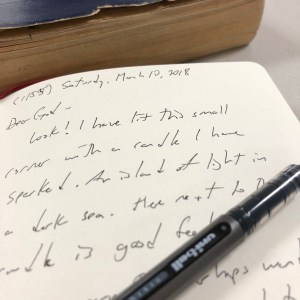 (1155) Saturday, March 10, 2018
Dear God—
Look! I have lit this small
corner with a candle I have
sparked. An island of light in
a dark sea. Here next to
candle is good
perhaps
uniball